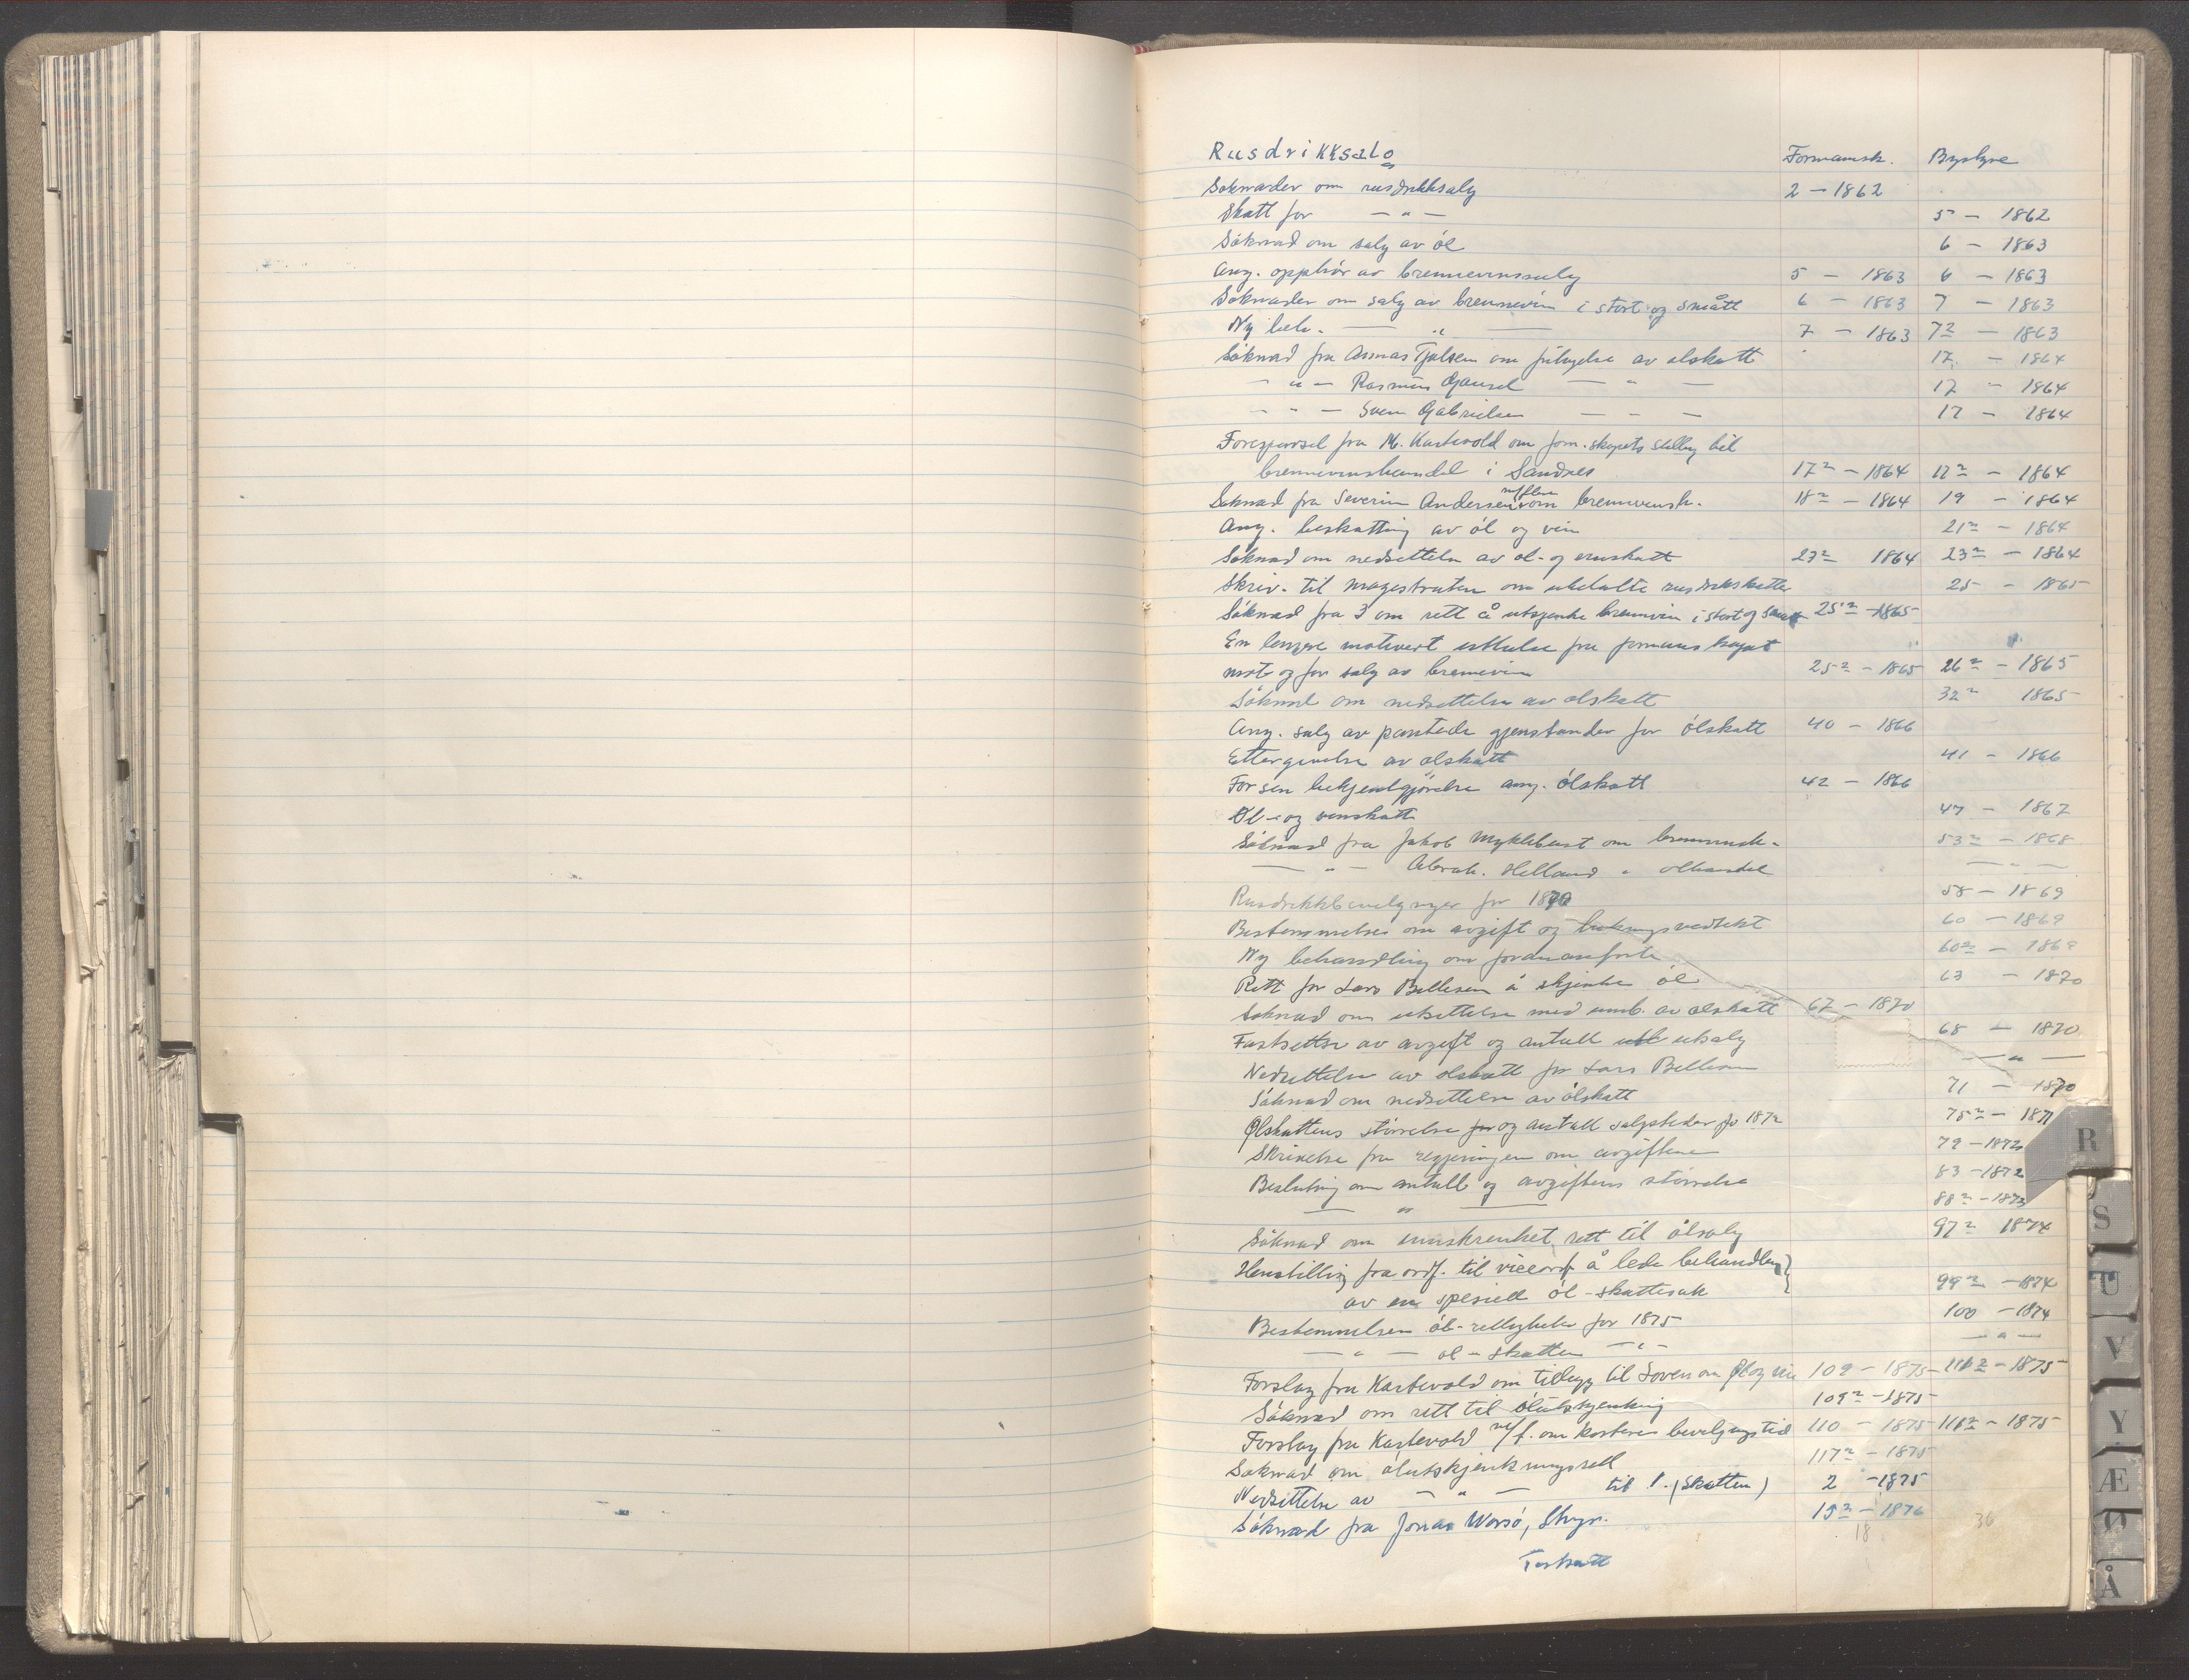 Rusdrikksalg Formannsk. Bystyre
Søknader om rusdrikksalg 2 - 1862
Skatt for - " - 5 - 1862
Søknad om salg av øl 6 - 1863
Ang. opphør av brennevinssalg 5 - 1863 6 - 1863
Søknader om salg av brennevin i stort og smått 6 - 1863 7 - 1863
Ny beh. - " - 7 - 1863 7² - 1863
Søknad fra Asmas Tjølsen om av ølskatt 17 - 1864
- " - Rasmus Gausel - " - 17 - 1864
- " - Sven Gabrielsen - " - 17 - 1864
Forespørsel fra M. Kartevold om form.skapets stilling til
brennevinshandel i Sandnes 17² - 1864 - 1864
Søknad fra Severin Andersen m/flere om brennevinsh. 18² - 1864 19 - 1864
Ang. beskatting av øl og vin 21² - 1864
Søknad om nedsettelse av øl- og vinskatt 23² 1864 23² - 1864
Skriv. til magestraten om ubetalte rusdrikskatter 25 - 1865
Søknad fra 3 om rett å utsjenke brennevin i stort og smått 25² - 1865
En lengre motivert uttalelse fra formannskapet
mot og for salg av brennevin 25² - 1865 26² - 1865
Søknad om nedsettelse av ølskatt 32² 1865
Ang. salg av pantede gjenstander for ølskatt 40 - 1866
Ettergivelse av ølskatt 41 - 1866
For sen bekjentgjørelse ang. ølskatt 42 - 1866
Øl- og vinskatt 47 - 1867
Søknad fra Jakob Myklebust om brennevinsh. 53² - 1868
- " - Abrah. Helland " ølhandel - " -
Rusdrikkbevilgninger for 1870 58 - 1869
Bestemmelse om avgift og vedtekt 60 - 1869
Ny behandling om 60² - 1869
Rett for Lars Bellesen å skjenke øl 63 - 1870
Søknad om utsettelse med innb. av ølskatt 67 - 1870
Fastsettse av avgift og antall utsalg 68 - 1870
Nedsettelse av ølskatt for Lars Bellesen - " -
Søknad om nedsettelse av ølskatt 71 - 1870
Ølskattens størrelse og antall salgsteder for 1872 75² - 1871
Skrivelse fra regjeringen om avgiftene 79 - 1872
Beslutning om antall og avgiftens størrelse 83 - 1872
- " - 88² - 1873
Søknad om innskrenket rett til ølsalg 97² 1874
Henstilling fra ordf. til viceordf. å lede behandling
av en spesiell øl-skattesak 99² - 1874
Bestemmelsen øl-rettigheter for 1875 100 - 1874
- " - øl-skatten - " - - " -
Forslag fra Kartevold om tillegg til Loven om Øl og vin 109 - 1875 - 1875
Søknad om rett til ølutskjenking 109² - 1875
Forslag fra Kartevold m/f. om kortere bevilgningstid 110 - 1875 - 1875
Søknad om ølutskjenkningsrett 117² - 1875
Nedsettelse av - " - til (Skatten) 2 - 1875
Søknad fra Jonas Worsø, 15² - 1876
18 36
Forkatt